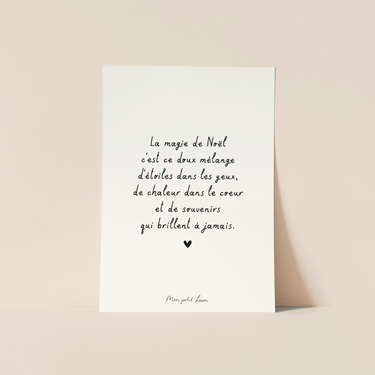 La magie de Noël
c'est ce doux mélange
d'étoiles dans les yeux,
de chaleur dans le cœur
et de souvenirs
qui brillent à jamais.
Mon petit Léon